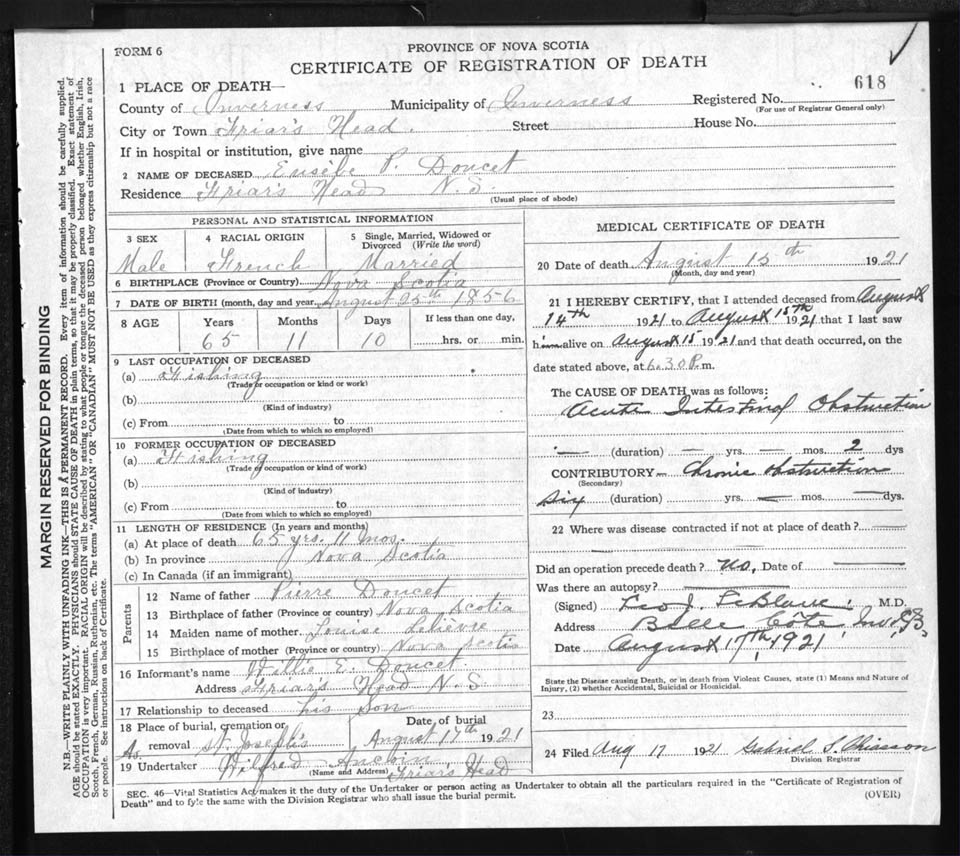 FORM 6
PROVINCE OF NOVA SCOTIA
CERTIFICATE OF REGISTRATION OF DEATH
618
1 PLACE OF DEATH—
County of Inverness Municipality of Inverness Registered No.
(For use of Registrar General only)
City or Town Friar's Head. Street House No.
If in hospital or institution, give name
2 NAME OF DECEASED Eusèbe P. Doucet
Residence Friar's Head N.S.
(Usual place of abode)
PERSONAL AND STATISTICAL INFORMATION
3 SEX 4 RACIAL ORIGIN 5 Single, Married, Widowed or Divorced (Write the word)
Male French Married
6 BIRTHPLACE (Province or Country) Nova Scotia
7 DATE OF BIRTH (month, day and year) August 25th 1856
8 AGE Years Months Days If less than one day,
65 11 10 hrs. or min.
9 LAST OCCUPATION OF DECEASED
(a) Fishing
(Trade or occupation or kind or work)
(b)
(Kind of industry)
(c) From to
(Date from which to which so employed)
10 FORMER OCCUPATION OF DECEASED
(a) Fishing
(Trade or occupation or kind of work)
(b)
(Kind of industry)
(c) From to
(Date from which to which so employed)
11 LENGTH OF RESIDENCE (In years and months)
(a) At place of death 65 yrs. 11 mos.
(b) In province Nova Scotia
(c) In Canada (if an immigrant)
Parents
12 Name of father Pierre Doucet
13 Birthplace of father (Province or country) Nova Scotia
14 Maiden name of mother Louise Lelièvre
15 Birthplace of mother (Province or country) Nova Scotia
16 Informant's name Willie E. Doucet.
Address Friar's Head N.S
17 Relationship to deceased his son
18 Place of burial, cremation or removal St. Joseph's Date of burial August 17th 1921
19 Undertaker Wilfred Friar's Head
(Name and Address)
MEDICAL CERTIFICATE OF DEATH
20 Date of death August 15th 1921
(Month, day and year)
21 I HEREBY CERTIFY, that I attended deceased from August
14th 1921 to August 15th 1921 that I last saw
him alive on August 15 1921 and that death occurred, on the
date stated above, at 6.30 P. m.
The CAUSE OF DEATH was as follows:
Acute Intestinal Obstruction
— (duration) — yrs. — mos. 2 dys
CONTRIBUTORY — Chronic obstruction
(Secondary)
Six (duration) yrs. — mos. — dys.
22 Where was disease contracted if not at place of death?
Did an operation precede death? No, Date of
Was there an autopsy?
(Signed) Leo J. LeBlanc M.D.
Address Belle Côte Inv.
Date August 17th, 1921
State the Disease causing Death, or in death from Violent Causes, state (1) Means and Nature of
Injury, (2) whether Accidental, Suicidal or Homicidal.
23
24 Filed Aug 17 1921 Gabriel S. Chiasson
Division Registrar
SEC. 46—Vital Statistics Act makes it the duty of the Undertaker or person acting as Undertaker to obtain all the particulars required in the "Certificate of Registration of
Death" and to fyle the same with the Division Registrar who shall issue the burial permit.
(OVER)
MARGIN RESERVED FOR BINDING
N.B.—WRITE PLAINLY WITH UNFADING INK—THIS IS A PERMANENT RECORD. Every item of information should be carefully supplied.
AGE should be stated EXACTLY. PHYSICIANS should STATE CAUSE OF DEATH in plain terms, so that it may be properly classified. Exact statement of
OCCUPATION is very important. RACIAL ORIGIN will be described by stating to what people or tongue the deceased person belonged whether English, Irish,
Scotch, French, German, Russian, Ruthenian, etc. The terms "AMERICAN" OR "CANADIAN" MUST NOT BE USED as they express citizenship but not a race
or people. See instructions on back of Certificate.